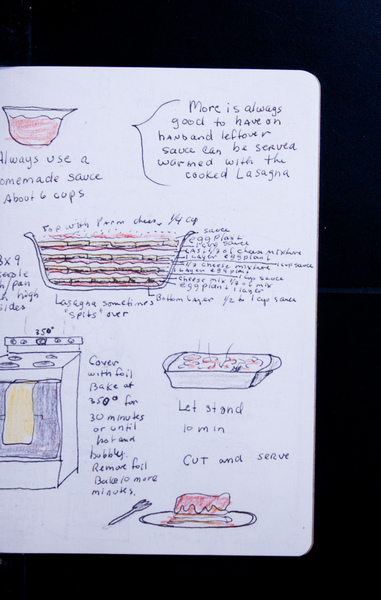 More is always
good to have on
hand and leftover
sauce can be served
warmed with the
cooked Lasagna
Always use a
homemade sauce
About 6 cups
Top with Parm cheese, 1/4 cup
sauce
eggplant
1 cup sauce
Last 1/3 of cheese mixture
1 Layer eggplant
1/3 cheese mixture 1 cup sauce
1 Layer eggplant
cheese mix 1/3 of mix
eggplant 1 layer
Bottom Layer 1/2 to 1 cup sauce
Lasagna sometimes
"spits" over
x 9
pan
high
sides
350°
Cover
with foil
Bake at
350° for
30 minutes
or until
hot and
bubbly.
Remove foil
Bake 10 more
minutes.
Let stand
10 min
Cut and serve